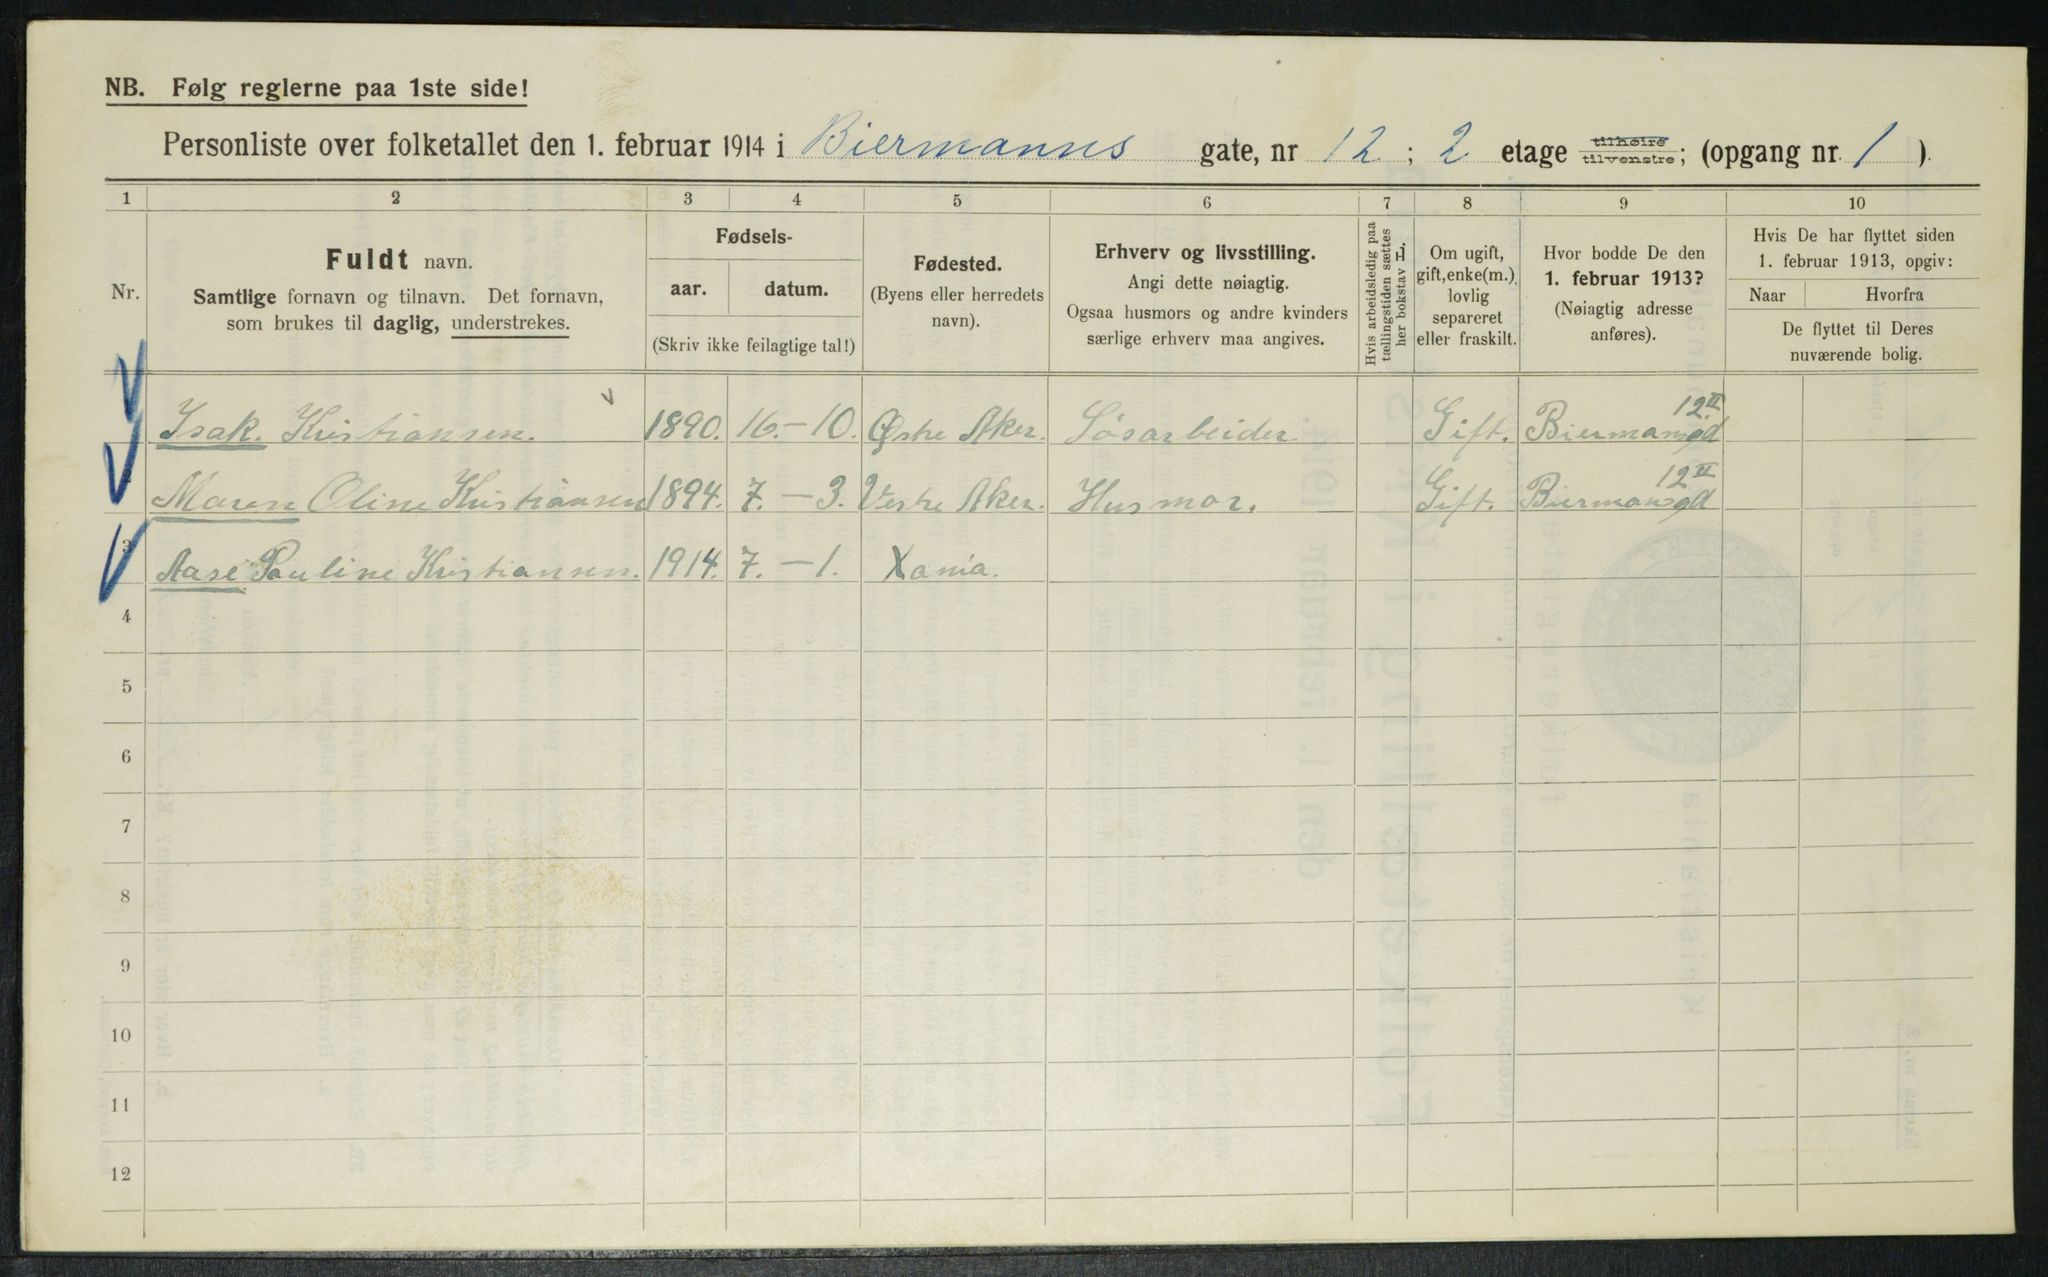 NB. Følg reglerne paa 1ste side!
Personliste over folketallet den 1. februar 1914 i Biermanns gate, nr 12 ; 2 etage tilhøire tilvenstre; (opgang nr. 1 ).
1 2 3 4 5 6 7 8 9 10
Nr.
Fuldt navn.
Samtlige fornavn og tilnavn. Det fornavn,
som brukes til daglig, understrekes.
Fødsels-
aar. datum.
(Skriv ikke feilagtige tal!)
Fødested.
(Byens eller herredets
navn).
Erhverv og livsstilling.
Angi dette nøiagtig.
Ogsaa husmors og andre kvinders
særlige erhverv maa angives.
Hvis arbeidsledig paa
tællingstiden sættes
her bokstav L.
Om ugift,
gift, enke(m.),
lovlig
separeret
eller fraskilt.
Hvor bodde De den
1. februar 1913?
(Nøiagtig adresse
anføres).
Hvis De har flyttet siden
1. februar 1913, opgiv:
Naar Hvorfra
De flyttet til Deres
nuværende bolig.
Isak. Kristiansen. 1890. 16.-10. Østre Aker. Søsarbeider. Gift. Biermansgd 12.II
2 Maren Oline Kristiansen 1894. 7.-3. Vestre Aker. Husmor. Gift. Biermansgd 12 II
3 Aase Pauline Kristiansen. 1914. 7.-1. Xania.
4
5
6
7
8
9
10
11
12